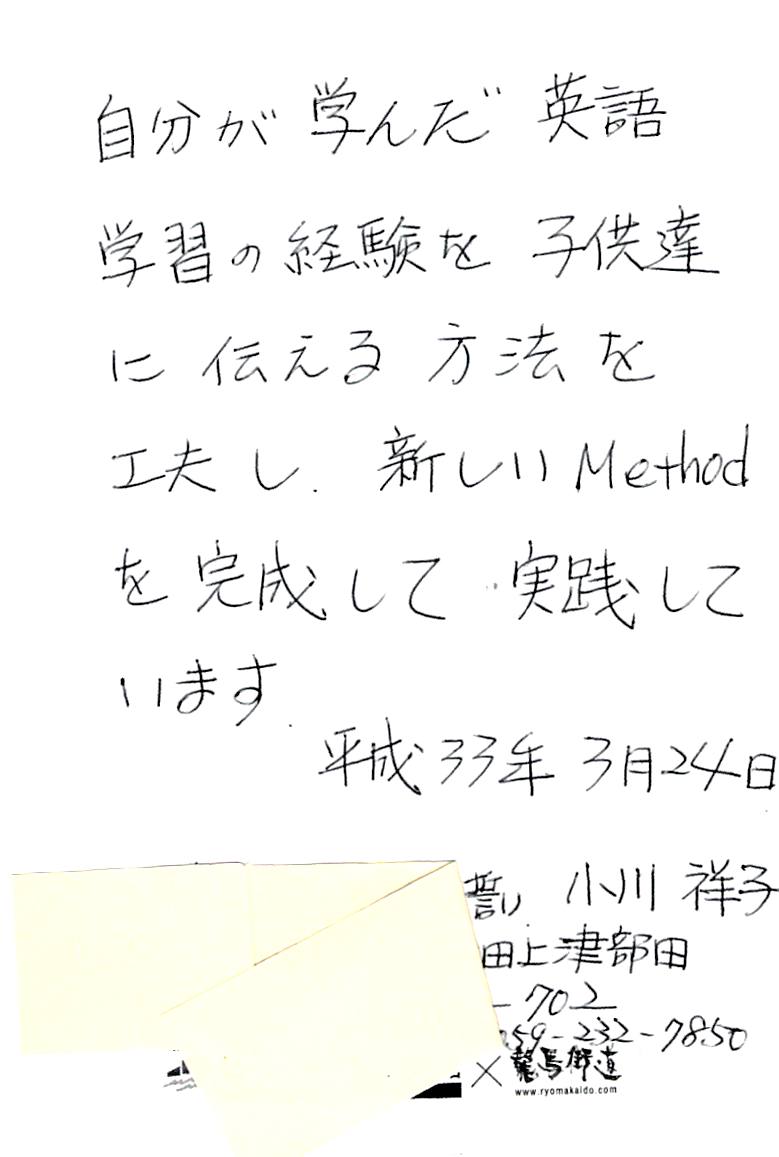 自分が 学んだ 英語
学習の 経験を 子供達
に 伝える 方法 を
工夫 し. 新しい Method
を 完成して 実践して
います.
平成 33年 3月24日
誓い 小川 祥子
田上津部田
-702
059-232-7850
× 龍馬街道
www.ryomakaido.com